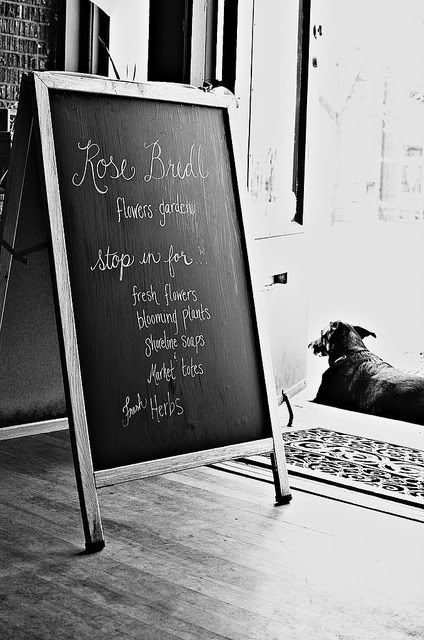 Rose Bredl
flowers·garden
stop in for...
fresh flowers
blooming plants
Shoreline soaps
&
Market totes
fresh Herbs